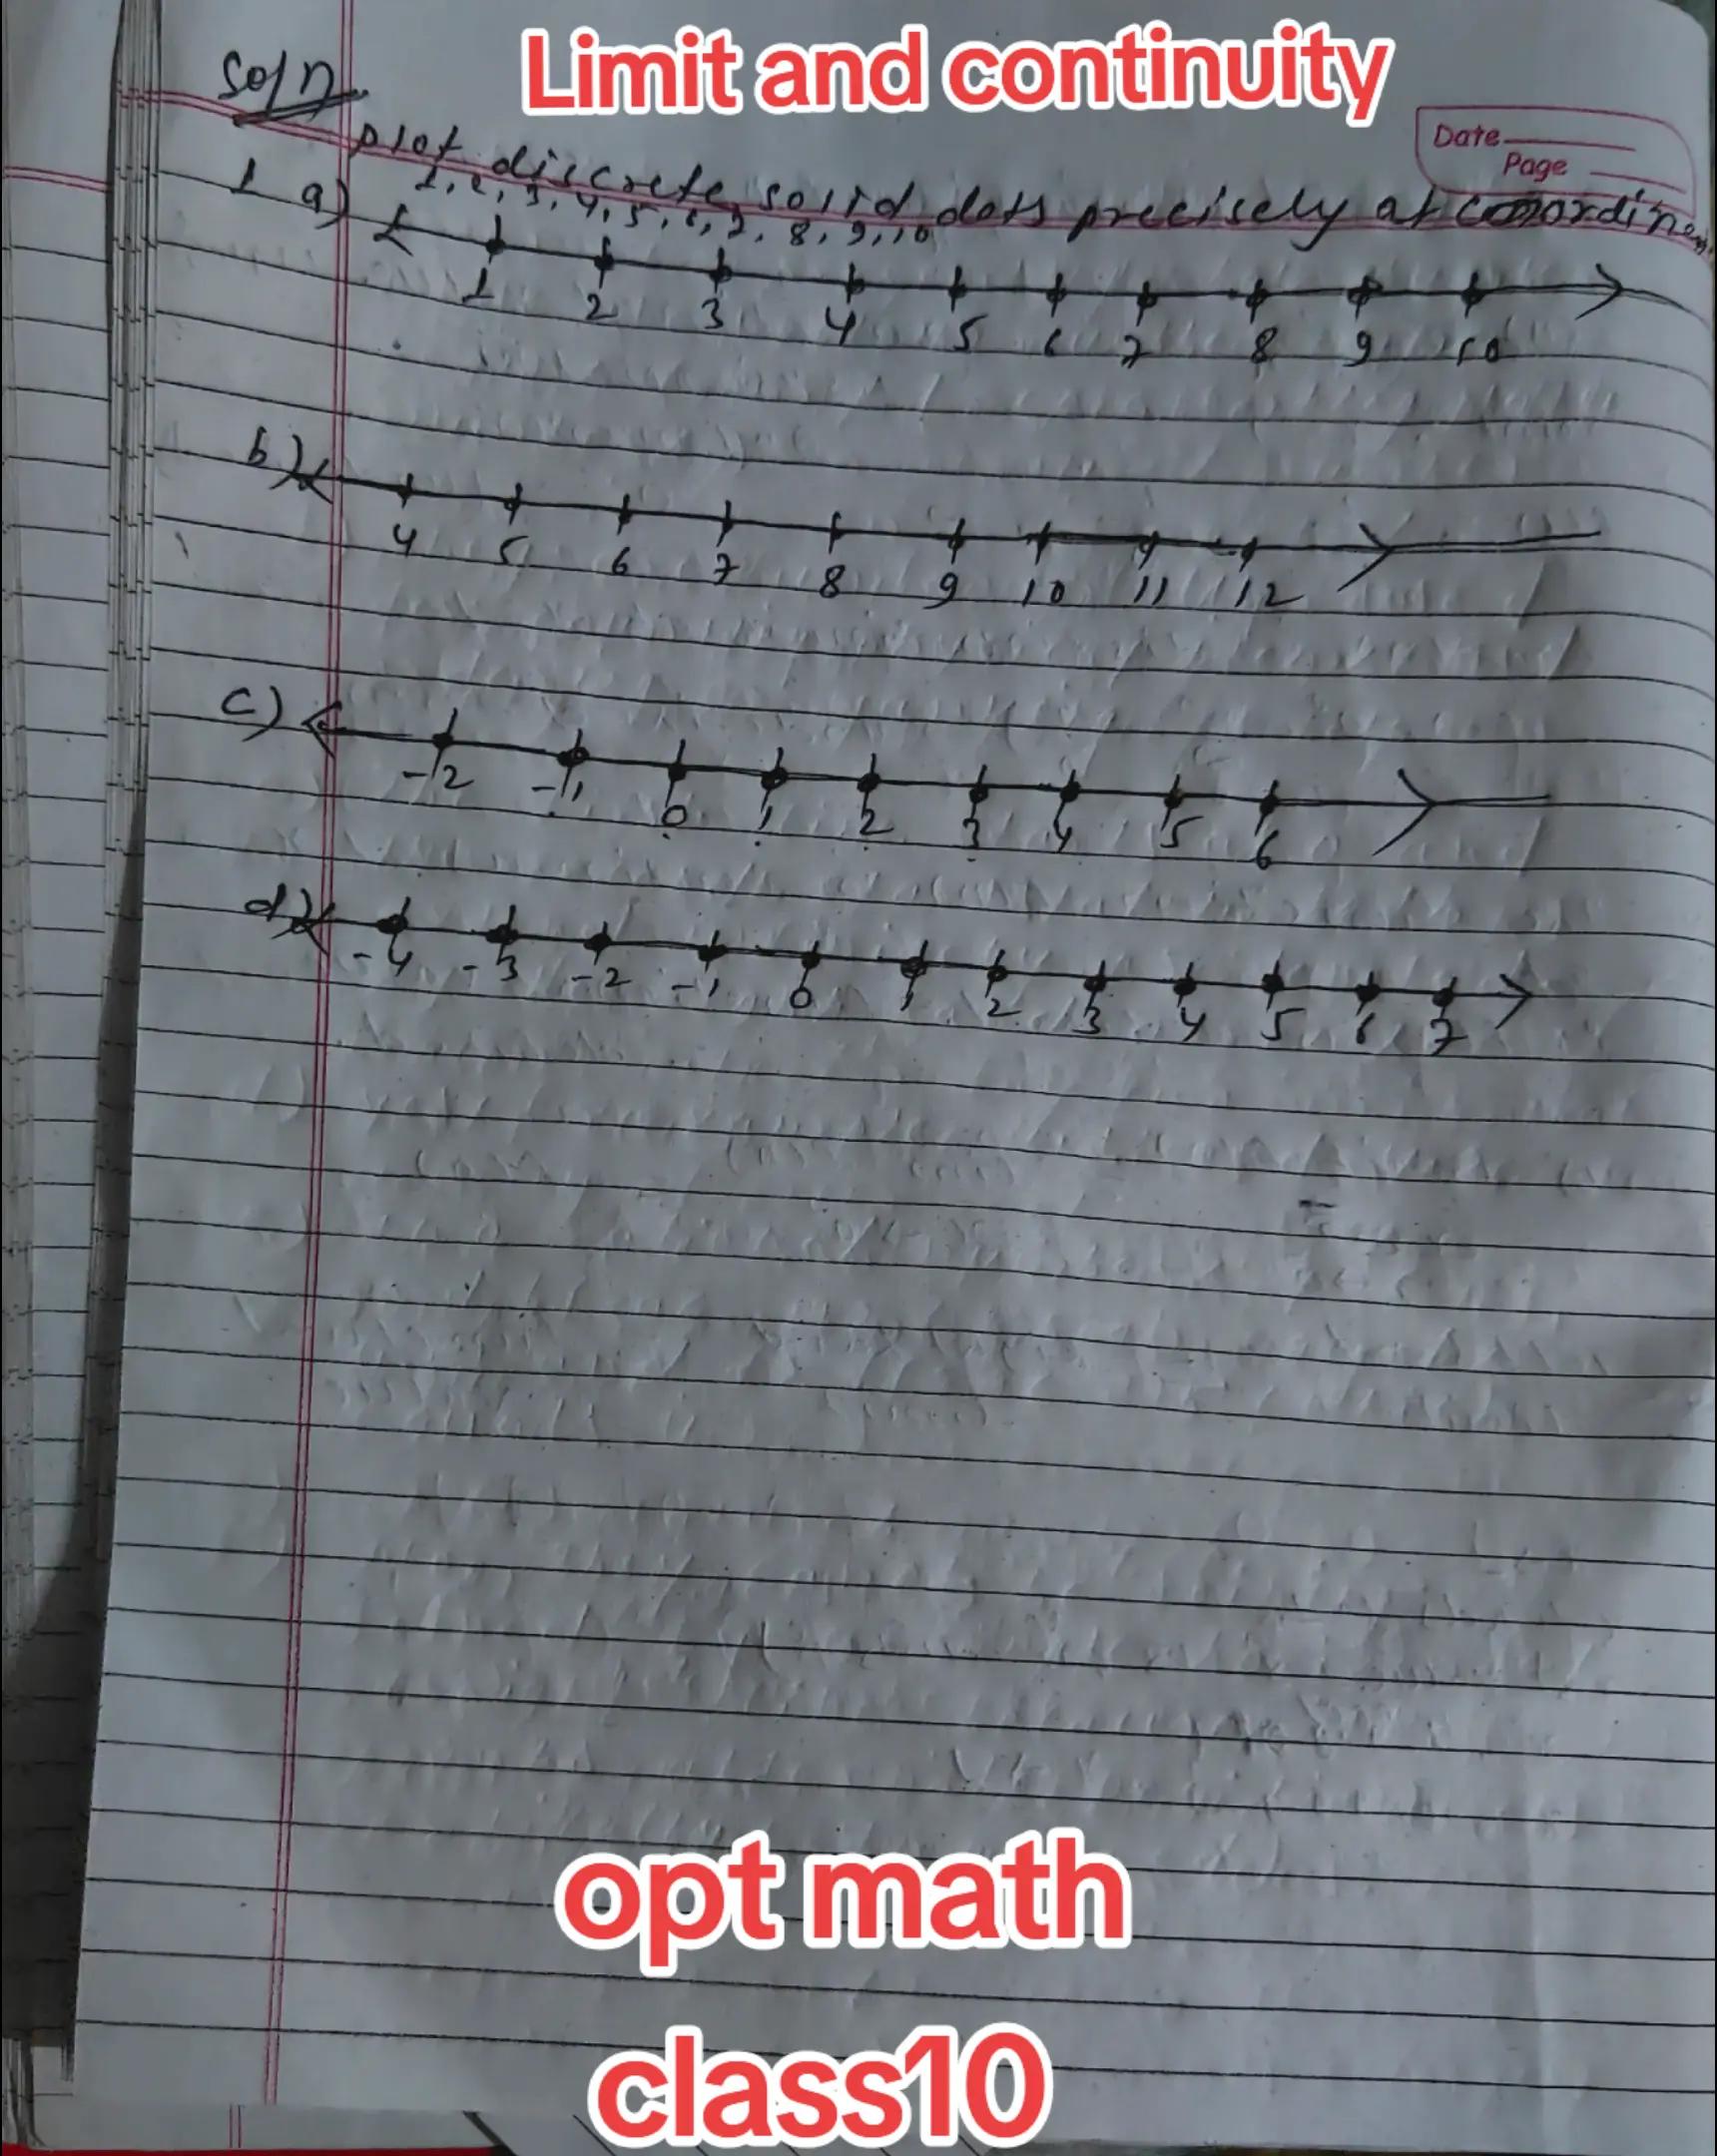 Limit and continuity
Soln
Date
Page
plot discrete solid dots precisely at
1 a) 1, 2, 3, 4, 5, 6, 7, 8, 9, 10
1 2 3 4 5 6 7 8 9 10
b)
4 5 6 7 8 9 10 11 12
c)
-2 -1 0 1 2 3 4 5 6
d)
-4 -3 -2 -1 0 1 2 3 4 5 6 7
opt math
class10